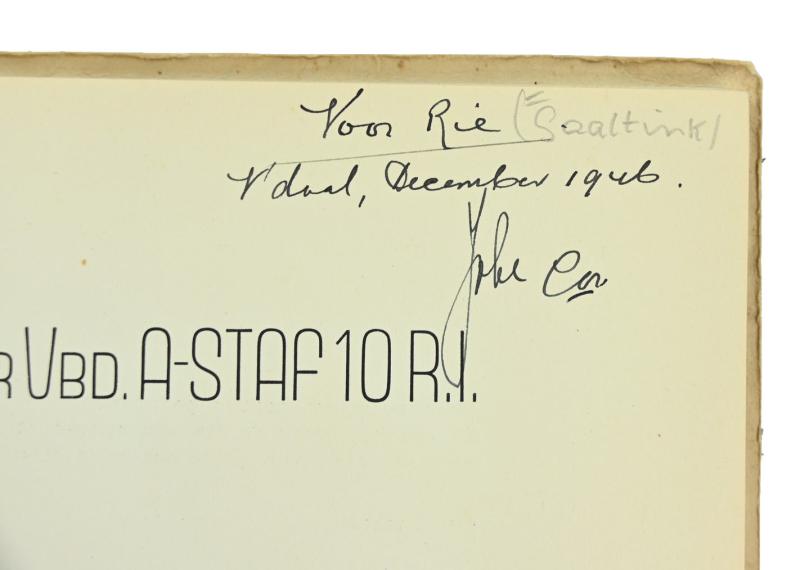 Voor Rie (= Saaltink)
V'daal, December 1946.
Joh. Cor
R VBD. A-STAF 10 R.I.